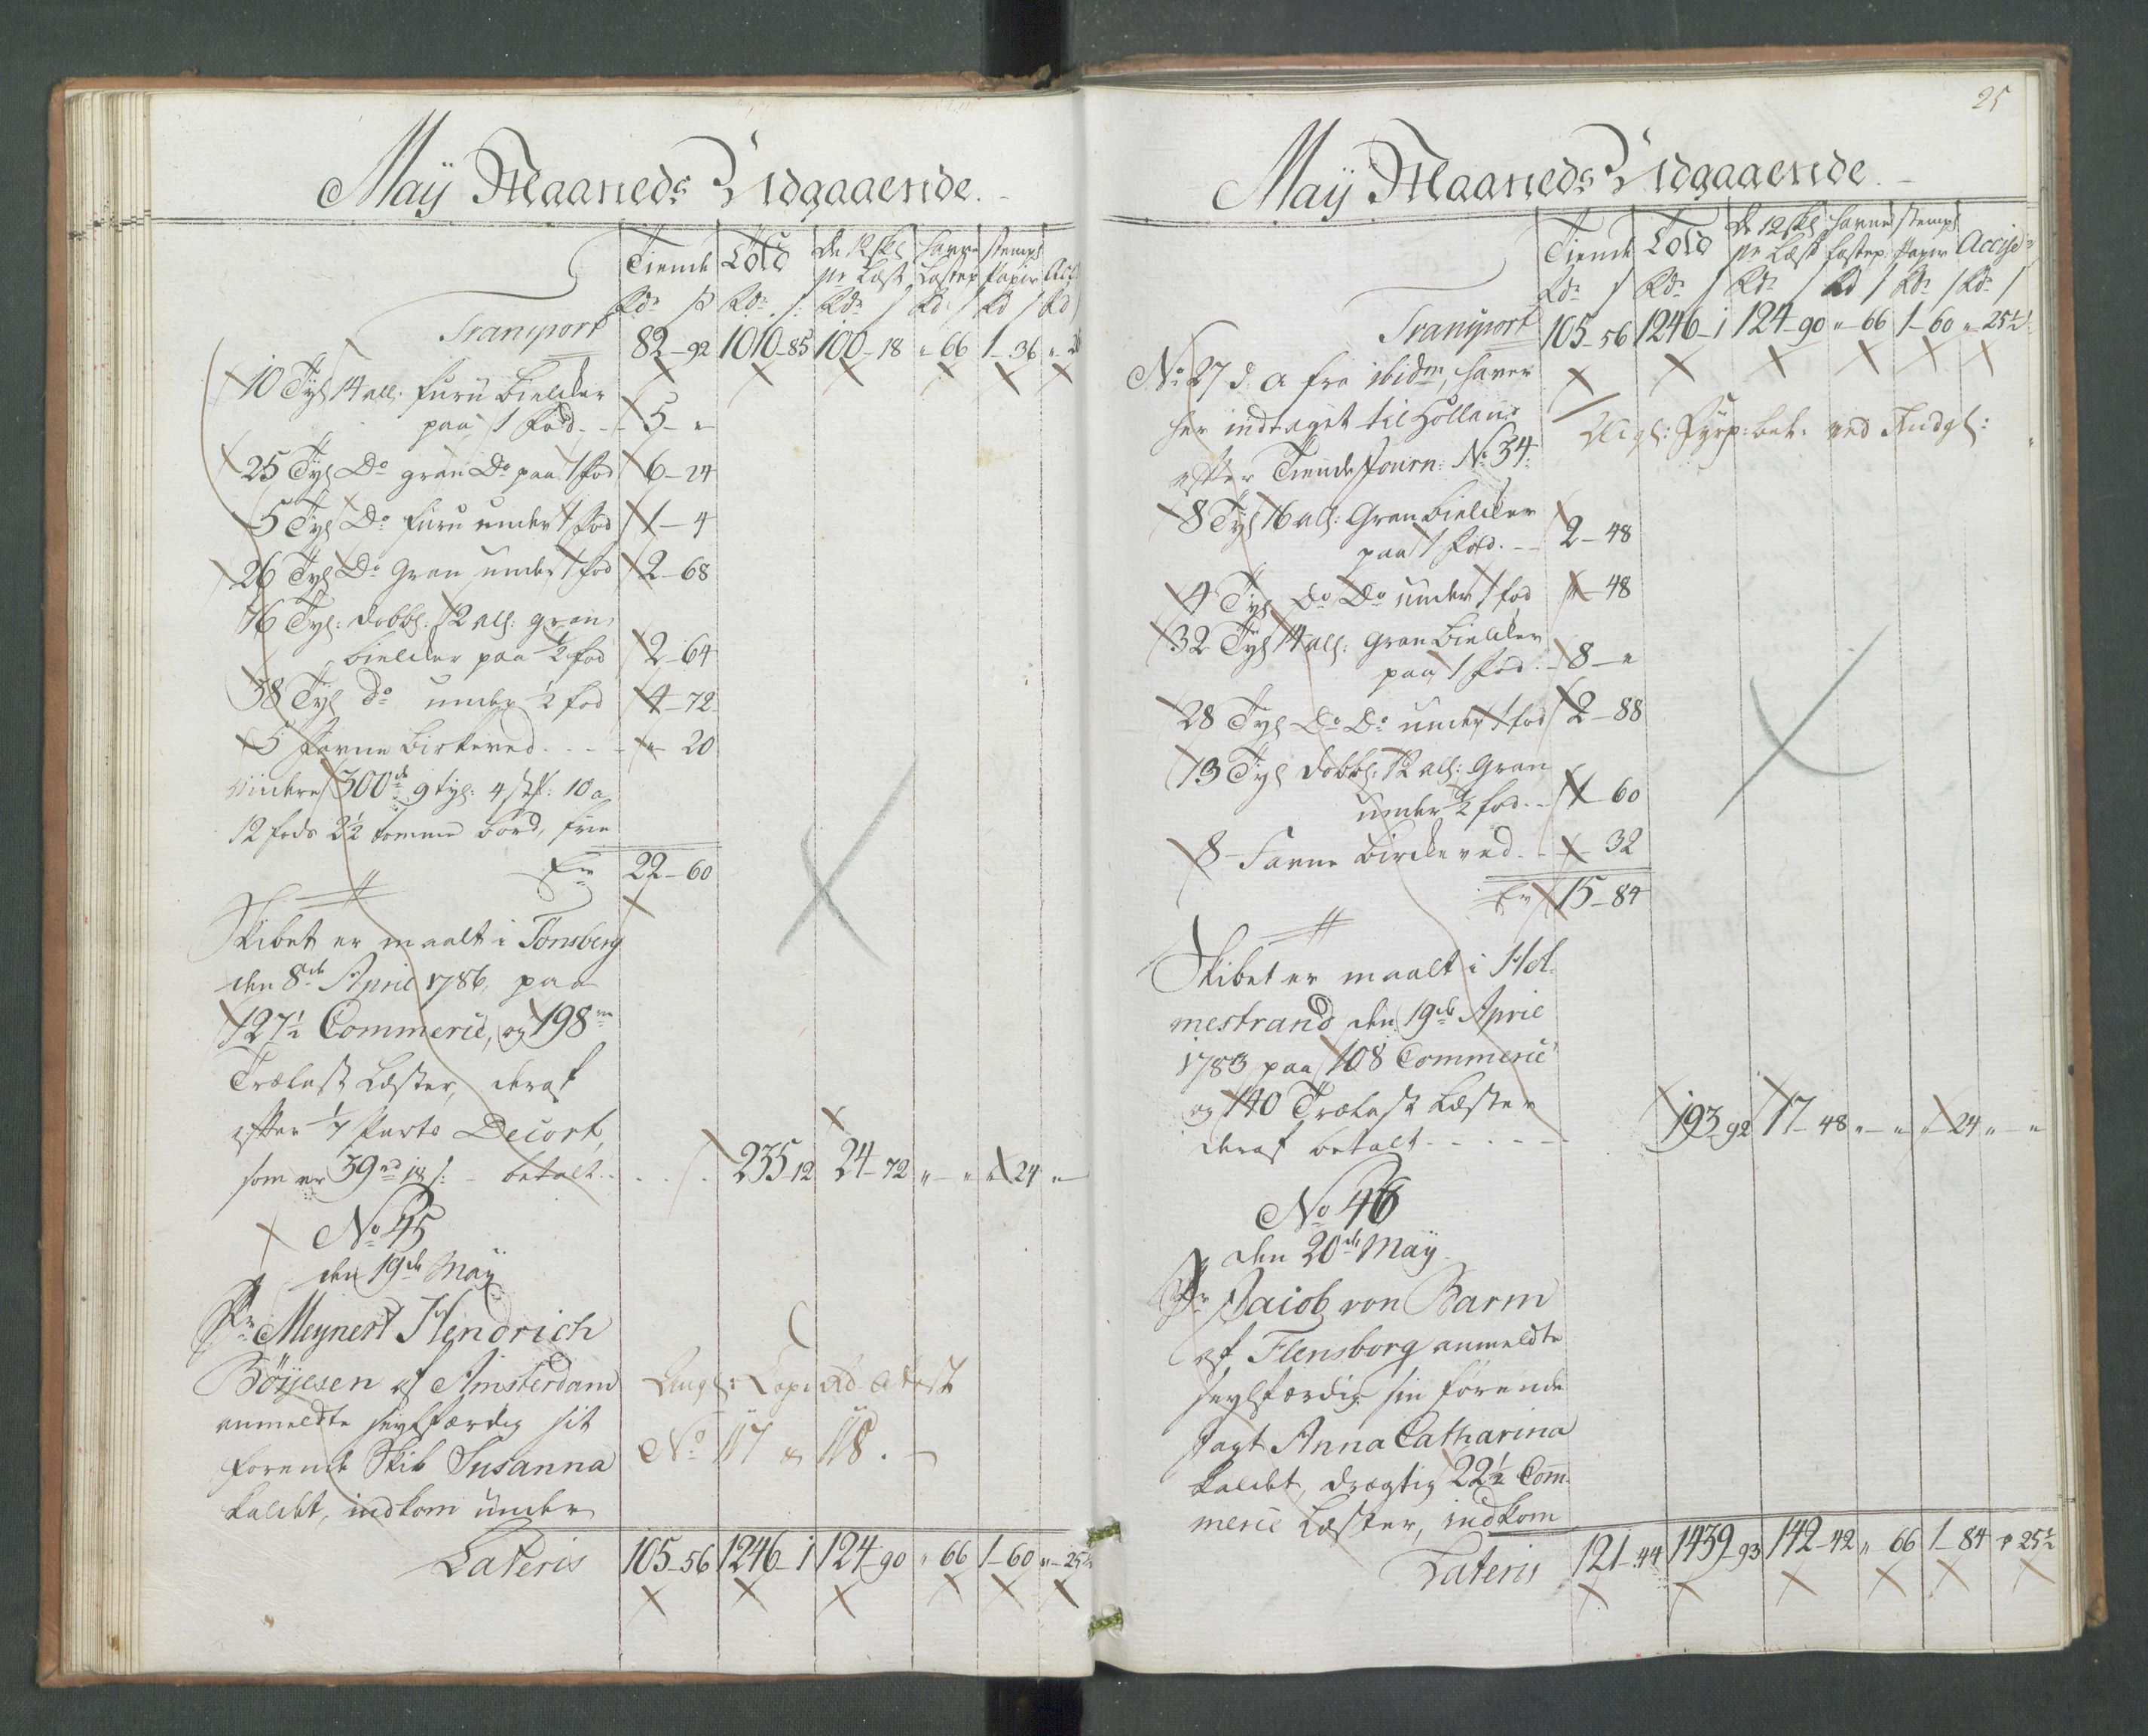 Maÿ Maaneds Udgaaende.
Tiende Told De 12 skl pr Læst Havne Lastep Stempl Papir Acc
Rdr s Rdr s Rdr s Rd s Rd s Rd
Transport 82-92 1010-85 100-18 "-66 1-36 "-
10 Tyl 14 all: furu bielcker
paa 1 fod. - 5-"
25 Tyl Do gran Do paa 1 fod 6-24
5 Tyl Do furu under 1 fod 1-4
26 Tyl Do Gran under 1 fod 2-68
16 Tyl: dobbl: 12 all: gran
bielcker paa 1/2 fod 2-64
38 Tyl do under 1/2 fod 4-72
5 favne birkeved . . . "-20
300de 9 tyl: 4 stk: 10 a
12 fods 2 1/2 tomme bord, frie
Er 22-60
Skibet er maalt i Tønsberg
den 8de April 1786, paa
127 1/2 Commerce, og 198
Trælast Læster, deraf
efter 1/7 Parts Decort,
som er 39 rd 18 s: - betalt . . . . . 235-12 24-72 "-" "-24 "-
No 45
den 19de Maÿ
Pr Meynert Hendrich
Böÿesen af Amsterdam
anmeldte seylfærdig sit
førende Skib Susanna
kaldet, indkom under
No 117 & 118.
Lateris 105-56 1246-1 124-90 "-66 1-60 "-25 1/2
25
Maÿ Maaneds Udgaaende.
Tiende Told De 12 skl pr Læst Havne Lastep: Stempl Papir Accise
Rdr s Rdr s Rdr s Rd s Rdr s Rdr s
Transport 105-56 1246-1 124-90 "-66 1-60 "-25 1/2
No 27 d. a fra ibidm, haver
her indtaget til Holland
efter Tiende Journ: No 34:
Fyrp: bet: ved Indgl:
8 Tyl 16 all: Gran bielcker
paa 1 fod. -- 2-48
4 Tyl Do Do under 1 fod "-48
32 Tyl 14 all: Gran bielcker
paa 1 fod. - 8-"
28 Tyl Do Do under 1 fod 2-88
13 Tyl dobbl: 12 all: Gran
under 1/2 fod. - 1-60
8 Favne birckeved. - "-32
Er 15-84
Skibet er maalt i Hol-
mestrand den 19de April
1783 paa 108 Commerce
og 140 Trælast Læster
deraf betalt - - - - - 193-92 17-48 "-" "-24 "-"
No 46
den 20de Maÿ.
Pr Jacob von Barm
af Flensborg anmeldte
seylfærdig sin førende
Jagt Anna Catharina
kaldet, drægtig 22 1/2 Com-
merce Læster, indkom
Lateris 121-44 1439-93 142-42 "-66 1-84 "-25 1/2